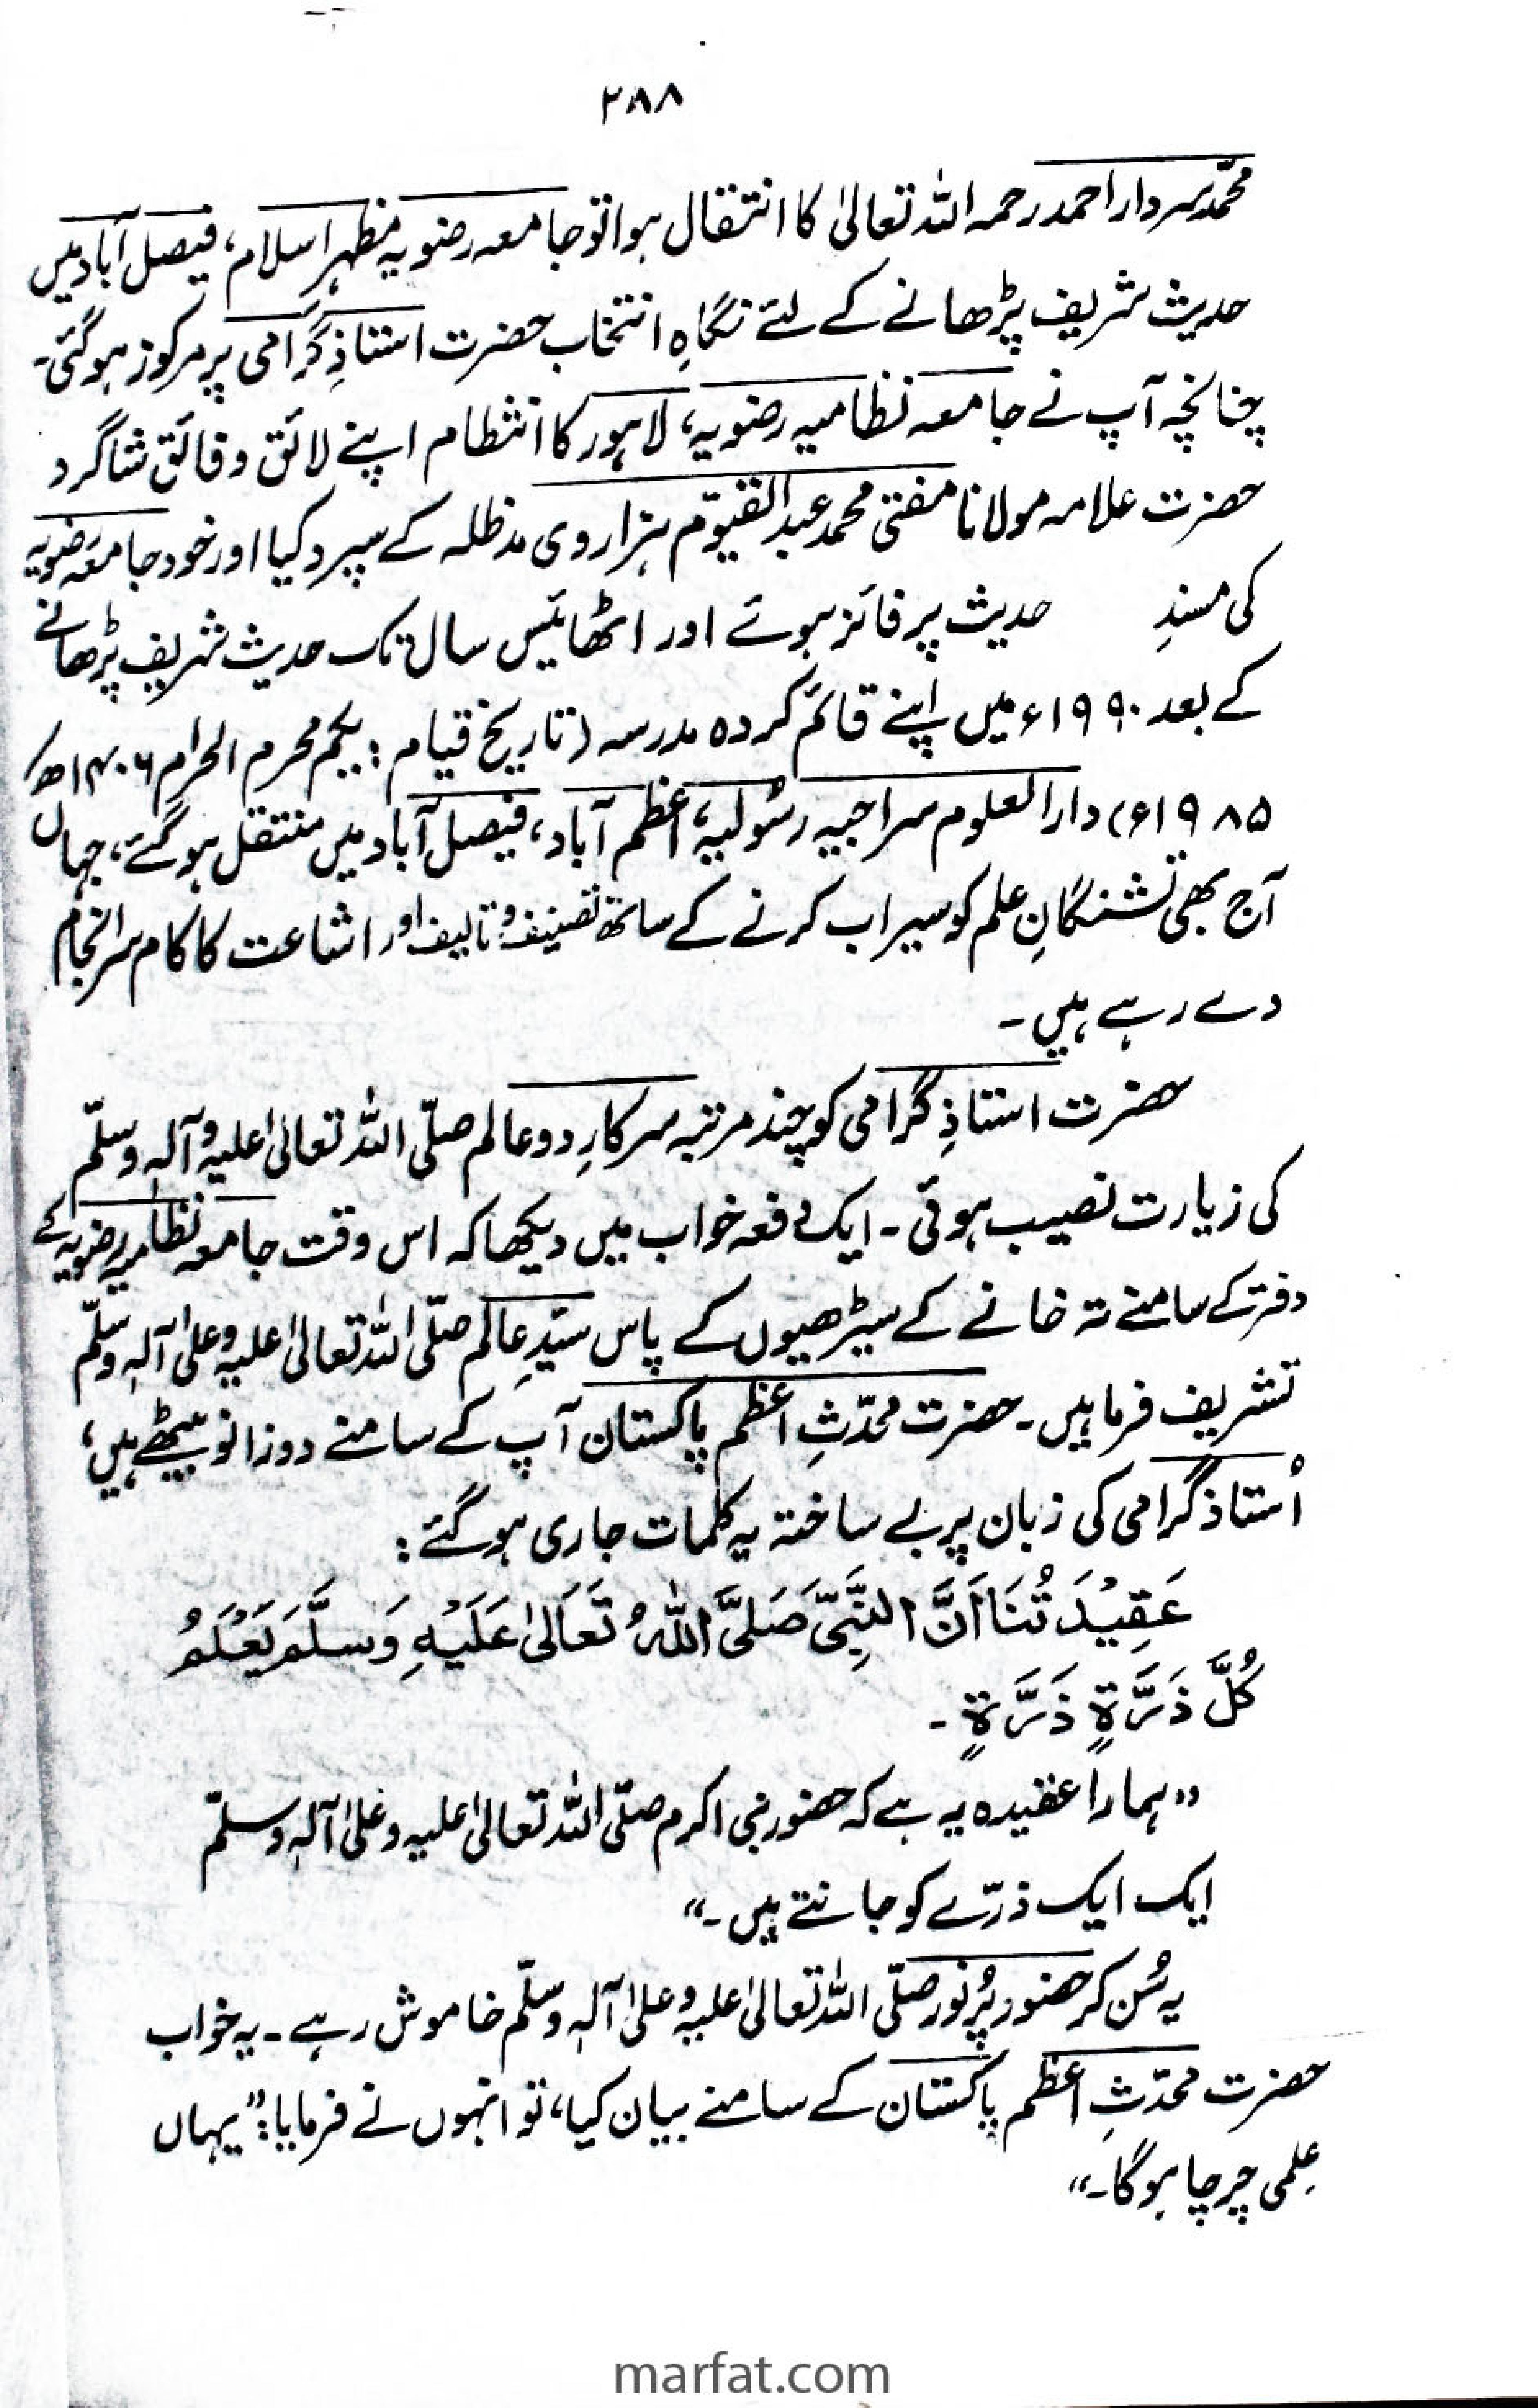 ۲۸۸
محمّد سردار احمد رحمہ اللہ تعالیٰ کا انتقال ہوا تو جامعہ رضویہ مظہر اسلام، فیصل آباد میں
حدیث شریف پڑھانے کے لئے نگاہِ انتخاب حضرت استاذِ گرامی پر مرکوز ہوگئی۔
چنانچہ آپ نے جامعہ نظامیہ رضویہ، لاہور کا انتظام اپنے لائق و فائق شاگرد
حضرت علامہ مولانا مفتی محمد عبدالقیوّم ہزاروی مدظلہ کے سپرد کیا اور خود جامعہ رضویہ
کی مسندِ حدیث پر فائز ہوئے اور اٹھائیس سال تک حدیث شریف پڑھانے
کے بعد ۱۹۹۰ء میں اپنے قائم کردہ مدرسہ (تاریخ قیام: یکم محرم الحرام ۱۴۰۶ھ/
۱۹۸۵ء) دارالعلوم سراجیہ رسُولیہ، اعظم آباد، فیصل آباد میں منتقل ہوگئے، جہاں
آج بھی تشنگانِ علم کو سیراب کرنے کے ساتھ تصنیف و تالیف اور اشاعت کا کام سرانجام
دے رہے ہیں۔
حضرت استاذِ گرامی کو چند مرتبہ سرکارِ دوعالم صلّی اللہ تعالیٰ علیہ وآلہٖ وسلّم
کی زیارت نصیب ہوئی۔ ایک دفعہ خواب میں دیکھا کہ اس وقت جامعہ نظامیہ رضویہ کے
دفتر کے سامنے تہ خانے کے سیڑھیوں کے پاس سیّدِ عالم صلّی اللہ تعالیٰ علیہ وعلیٰ آلہٖ وسلّم
تشریف فرما ہیں۔ حضرت محدّثِ اعظم پاکستان آپ کے سامنے دوزانو بیٹھے ہیں،
اُستاذ گرامی کی زبان پر بے ساختہ یہ کلمات جاری ہوگئے:
عَقِيْدَتُنَا اَنَّ النَّبِيَّ صَلَّی اللّٰهُ تَعَالیٰ عَلَيْهِ وَسَلَّمَ يَعْلَمُ
كُلَّ ذَرَّةٍ ذَرَّةٍ ۔
”ہمارا عقیدہ یہ ہے کہ حضور نبی اکرم صلّی اللہ تعالیٰ علیہ وعلیٰ آلہٖ وسلّم
ایک ایک ذرّے کو جانتے ہیں۔“
یہ سُن کر حضور پُرنور صلّی اللہ تعالیٰ علیہ وعلیٰ آلہٖ وسلّم خاموش رہے۔ یہ خواب
حضرت محدّثِ اعظم پاکستان کے سامنے بیان کیا، تو انہوں نے فرمایا: ”یہاں
عِلمی چرچا ہوگا۔“
marfat.com